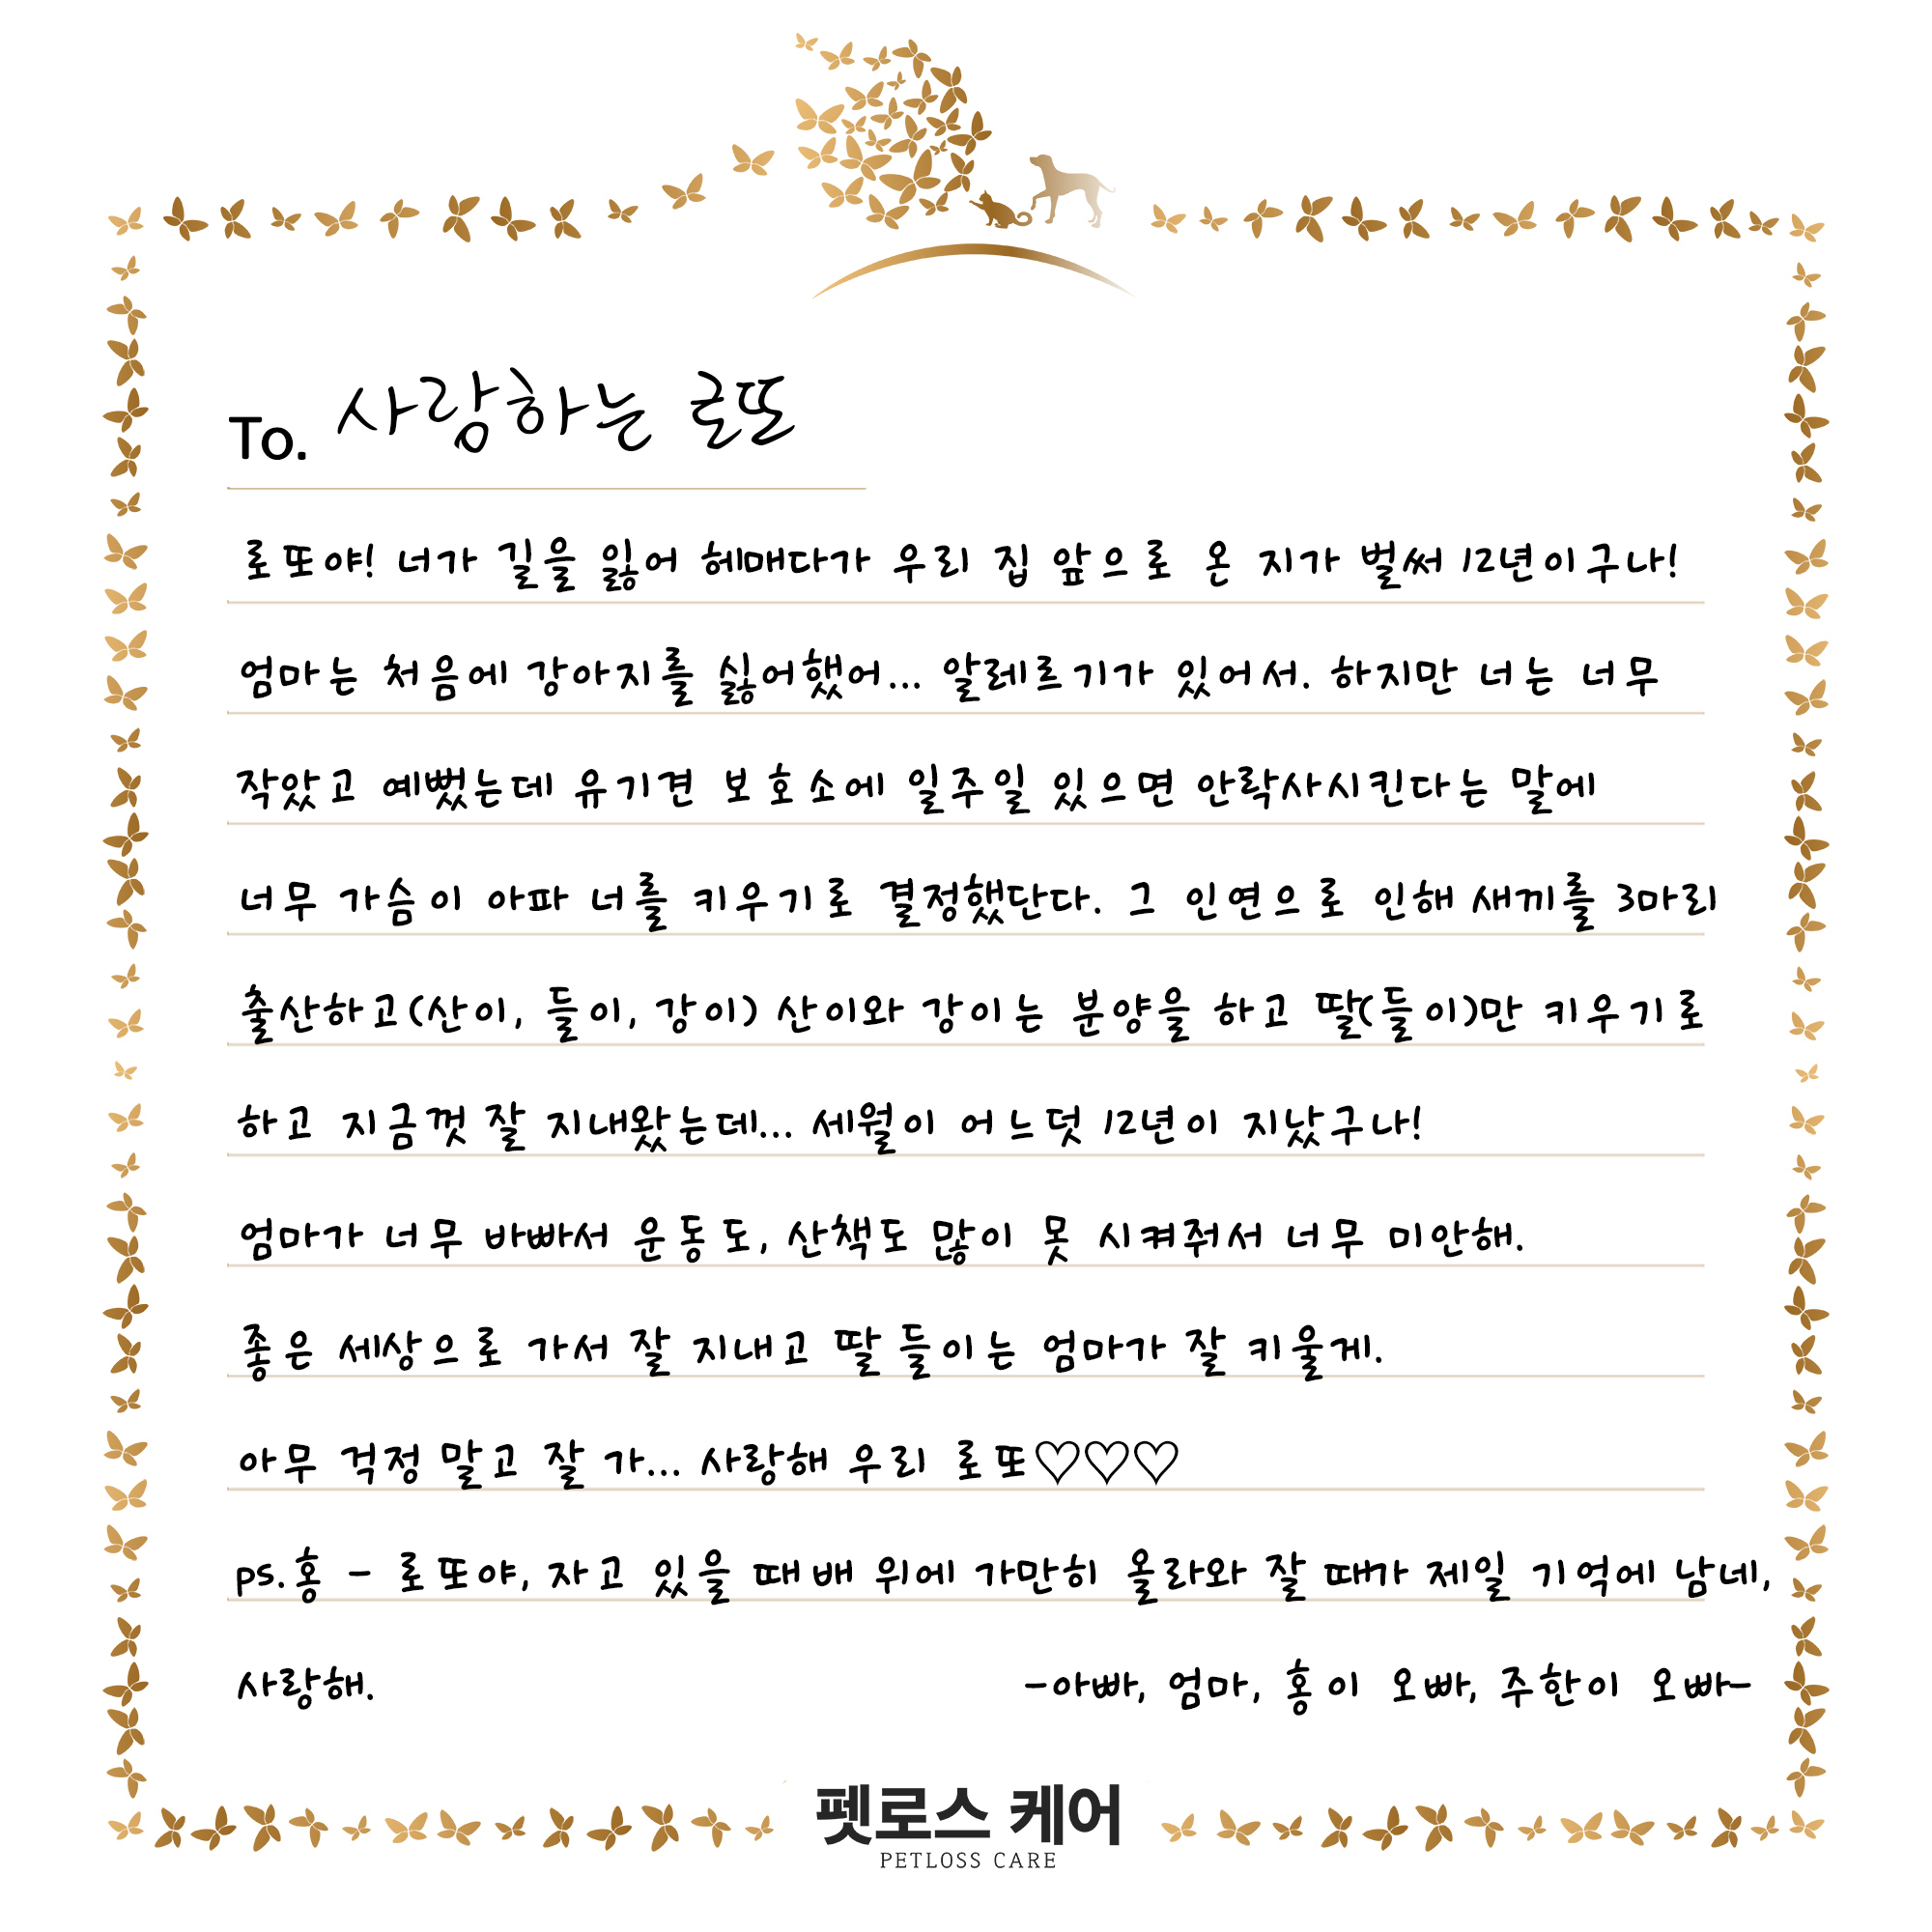 To. 사랑하는 로또
로또야! 너가 길을 잃어 헤매다가 우리 집 앞으로 온 지가 벌써 12년이구나!
엄마는 처음에 강아지를 싫어했어... 알레르기가 있어서. 하지만 너는 너무
작았고 예뻤는데 유기견 보호소에 일주일 있으면 안락사시킨다는 말에
너무 가슴이 아파 너를 키우기로 결정했단다. 그 인연으로 인해 새끼를 3마리
출산하고(산이, 들이, 강이) 산이와 강이는 분양을 하고 딸(들이)만 키우기로
하고 지금껏 잘 지내왔는데... 세월이 어느덧 12년이 지났구나!
엄마가 너무 바빠서 운동도, 산책도 많이 못 시켜줘서 너무 미안해.
좋은 세상으로 가서 잘 지내고 딸 들이는 엄마가 잘 키울게.
아무 걱정 말고 잘 가... 사랑해 우리 로또♡♡♡
ps.홍 - 로또야, 자고 있을 때 배 위에 가만히 올라와 잘 때가 제일 기억에 남네,
사랑해. -아빠, 엄마, 홍이 오빠, 주한이 오빠-
펫로스 케어
PETLOSS CARE